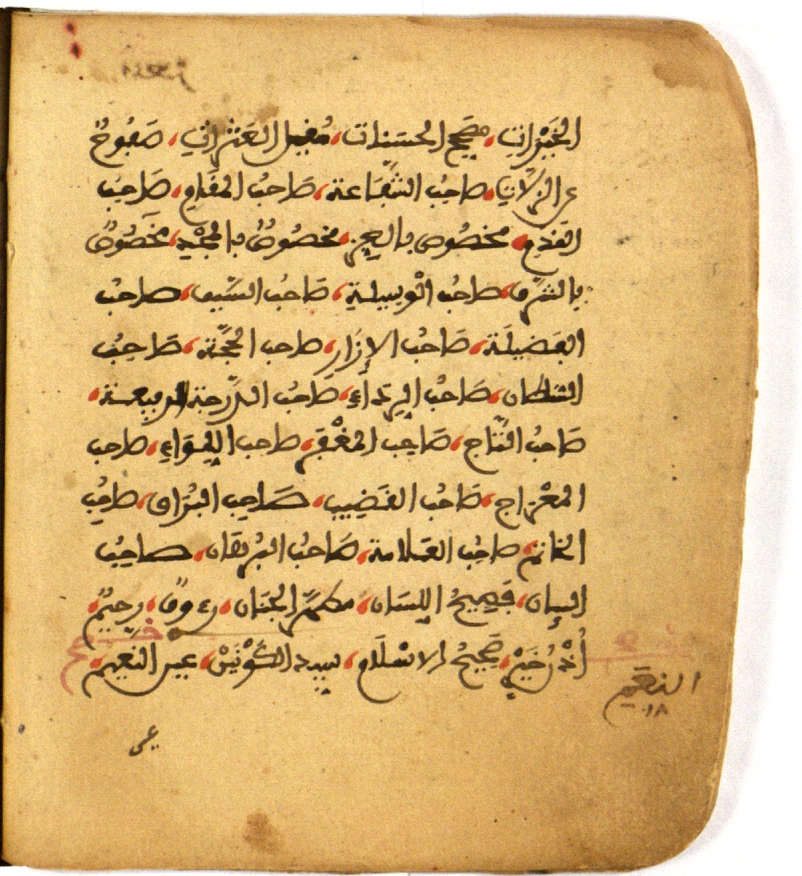 الخيرات، مصحح الحسنات، مقيل العثرات، صفوح
عن الزلات، صاحب الشفاعة، صاحب المقام، صاحب
القدم، مخصوص بالعز، مخصوص بالمجد، مخصوص
بالشرف، صاحب الوسيلة، صاحب السيف، صاحب
الفضيلة، صاحب الإزار، صاحب الحجة، صاحب
السلطان، صاحب الرداء، صاحب الدرجة الرفيعة،
صاحب التاج، صاحب المغفر، صاحب اللواء، صاحب
المعراج، صاحب القضيب، صاحب البراق، صاحب
الخاتم، صاحب العلامة، صاحب البرهان، صاحب
البيان، فصيح اللسان، مطهر الجنان، رءوف، رحيم،
أذن خير، صحيح الاسلام، سيد الكونين، عين النعيم،
النعيم